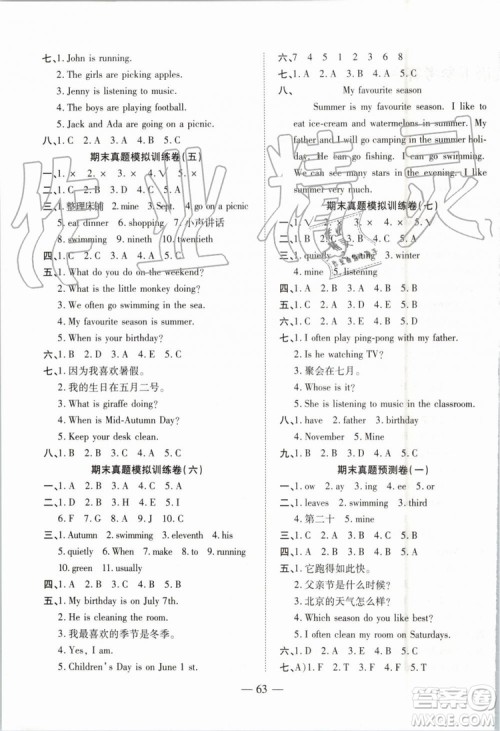 七、1. John is running.
2. The girls are picking apples.
3. Jenny is listening to music.
4. The boys are playing football.
5. Jack and Ada are going on a picnic.
八、1. C 2. A 3. A 4. B 5. C
期末真题模拟训练卷(五)
一、1. × 2. × 3. 4. 5. ×
二、1. D 2. A 3. C 4. B 5. A
三、1. 整理床铺 2. mine 3. Sept 4. go on a picnic
5. eat dinner 6. shopping 7. 小声讲话
8. swimming 9. nineth 10. twelfth
四、1. B 2. A 3. C 4. B 5. C
五、1. What do you do on the weekend?
2. What is the little monkey doing?
3. We often go swimming in the sea.
4. My favourite season is summer.
5. When is your birthday?
六、1. B 2. D 3. A 4. E 5. C
七、1. 因为我喜欢暑假。
2. 我的生日在五月二号。
3. What is giraffe doing?
4. When is Mid-Autumn Day?
5. Keep your desk clean.
八、1. C 2. A 3. B 4. A 5. C
期末真题模拟训练卷(六)
一、1. B 2. A 3. A 4. C 5. B
二、1. B 2. A 3. D 4. E 5. C
6. F 7. F 8. T 9. F 10. T
三、1. Autumn 2. swimming 3. eleventh 4. his
5. quietly 6. When 7. mine 8. reading 9. B
10. green 11. usually
四、1. A 2. B 3. C 4. B 5. B
五、1. C 2. D 3. E 4. A 5. B
六、1. My birthday is on July 7th.
2. He is cleaning the room.
3. 我最喜欢的季节是冬季。
4. Yes, I am.
5. Children's Day is on June 1 st.
六、7 4 5 8 1 2 3 6
七、1. A 2. A 3. B 4. A 5. C
八、 My favourite season
Summer is my favourite season. I like to
eat ice-cream and watermelons in summer. My
birthday is in summer. I will go camping in the
summer holiday. He can go fishing. I can go
swimming. We can eat many meals in summer. I
like summer very much.
期末真题模拟训练卷(七)
一、1. 2. × 3. × 4. × 5. ×
二、1. B 2. A 3. C 4. B 5. C
三、1. quietly 2. sing 3. winter
4. mine 5. listening
四、1. A 2. B 3. A 4. B 5. C
五、1. B 2. D 3. A 4. E 5. C
六、1. A 2. D 3. C 4. E 5. B
七、1. I often play ping-pong with my father.
2. Is he watching TV?
3. 聚会在七月。
4. Whose is it?
5. She is listening to music in the classroom.
八、1. have 2. father 3. birthday
4. November 5. Mine
九、1. C 2. B 3. A 4. C 5. A
期末真题预测卷(一)
一、1. ow 2. ay 3. or 4. ea 5. ng
二、1. leaves 2. swimming 3. third
4. 第二十 5. mine
三、1. A 2. B 3. B 4. B 5. A
四、1. B 2. A 3. D 4. C 5. E
五、1. 它跑得如此快。
2. 父亲节是什么时候?
3. 北京的天气怎么样?
4. Which season do you like best?
5. I often clean my room on Saturdays.
六、1. A 2. B 3. C 4. B 5. C
七、A)1. F 2. T 3. F 4. T 5. F
63
作业精灵
答案圈
MXQE.COM